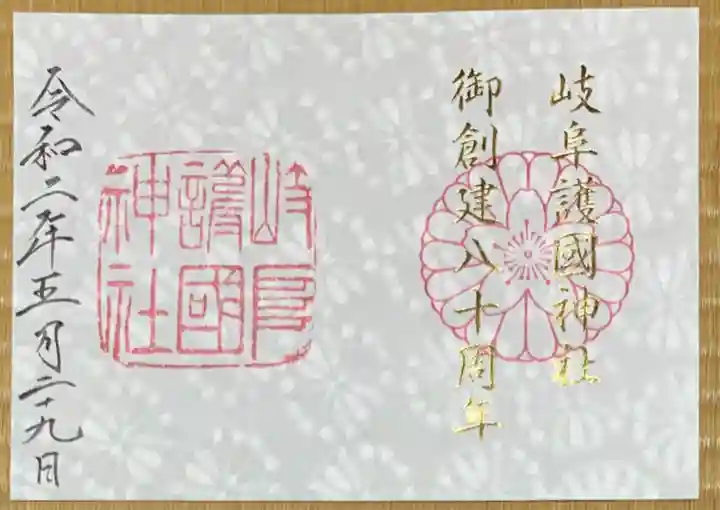 岐阜護國神社
御創建八十周年
岐阜
護國
神社
令和二年五月二十九日